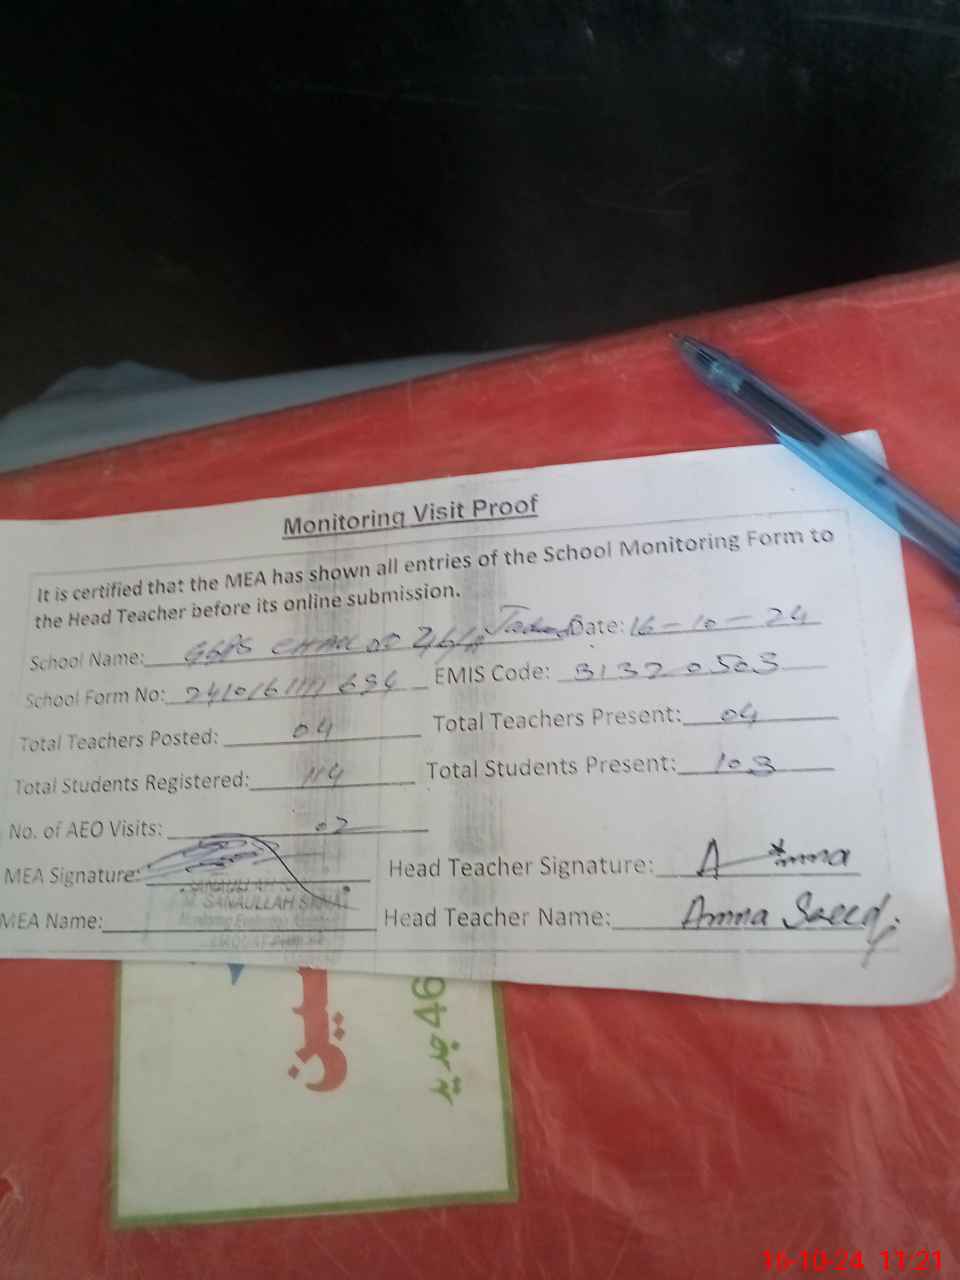 Monitoring Visit Proof
It is certified that the MEA has shown all entries of the School Monitoring Form to
the Head Teacher before its online submission.
School Name: GGPS CHAK NO 46/A Date: 16-10-24
School Form No: EMIS Code: 31320503
Total Teachers Posted: 04 Total Teachers Present: 04
Total Students Registered: 114 Total Students Present: 103
No. of AEO Visits: 02
MEA Signature: Head Teacher Signature: Amna
SANAULLAH
MEA Name: Head Teacher Name: Amna Saeed
46
16-10-24 11:21